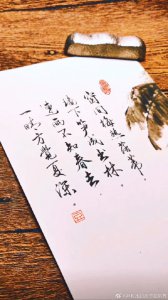 窗间梅熟落蒂
墙下笋成出林
连雨不知春去
一晴方觉夏深